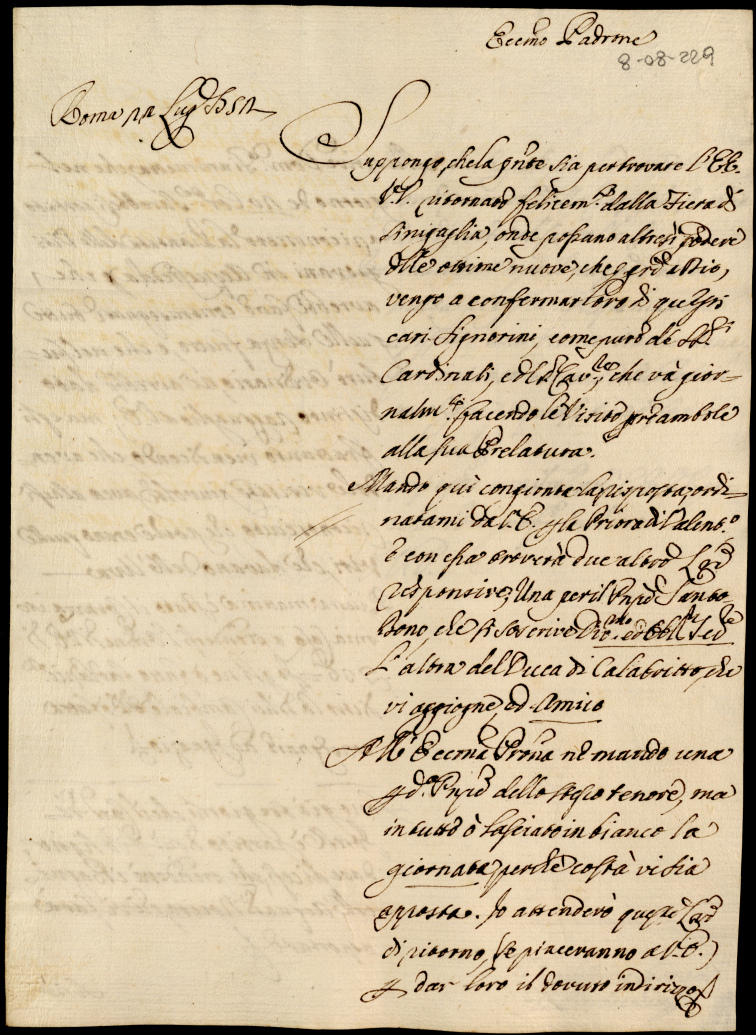 Eccmo Padrone
8-08-229
Roma 12 Lug
Suppongo, che la pnte sia per trovare l'EE.
V.V. ritornate felicemte dalla Fiera di
Sinigaglia, onde possano altresì godere
delle ottime nuove, che,
vengo a confermar loro di questi
cari Signorini, come pure de Sri
Cardinali, e del Sr Cavre, che và gior-
nalmte facendo le Visite preambole
alla sua Prelatura.
Mando quì congionta la risposta ordi-
natami da V.E. per la Priora di Valento
e con essa troverà due altre Lre
responsive; Una per il Prnpe Santo
Bono, che si sottoscrive Divmo ed Obblmo Serre
L'altra del Duca di Calabritto, che
vi aggiogne, ed Amico
All' Eccma Prona ne mando una
per do Prnpe dello stesso tenore, ma
in tutte ò lasciato in bianco la
giornata, perche costà vi sia
apposta. Io attenderò queste Lre
di ritorno, (se piaceranno a V.E.)
per dar loro il dovuto indirizzo